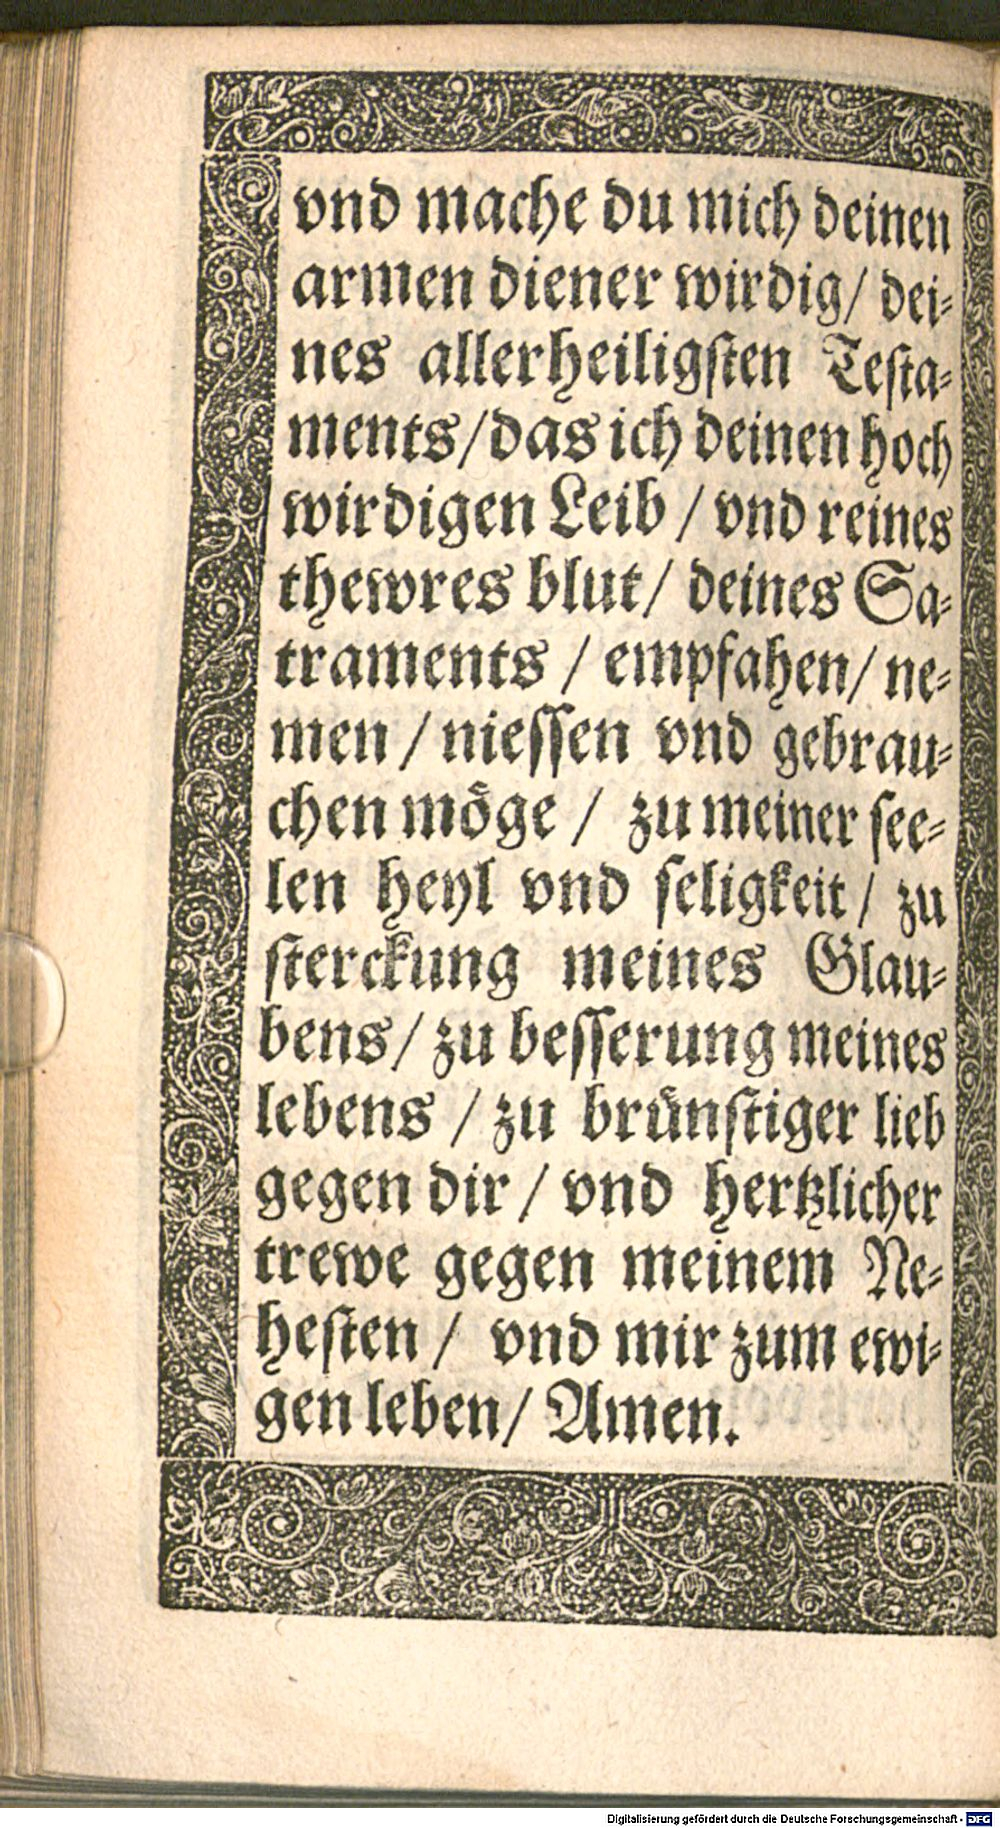 vnd mache du mich deinen
armen diener wirdig/ dei⸗
nes allerheiligsten Testa⸗
ments/das ich deinen hoch
wirdigen Leib / vnd reines
thewres blut/ deines Sa⸗
traments / empfahen/ ne⸗
men / niessen vnd gebrau⸗
chen möge / zu meiner see⸗
len heyl vnd seligkeit / zu
sterckung meines Glau⸗
bens/ zu besserung meines
lebens / zu brünstiger lieb
gegen dir / vnd hertzlicher
trewe gegen meinem Ne⸗
hesten / vnd mir zum ewi⸗
gen leben/ Amen.
Digitalisierung gefördert durch die Deutsche Forschungsgemeinschaft - DFG